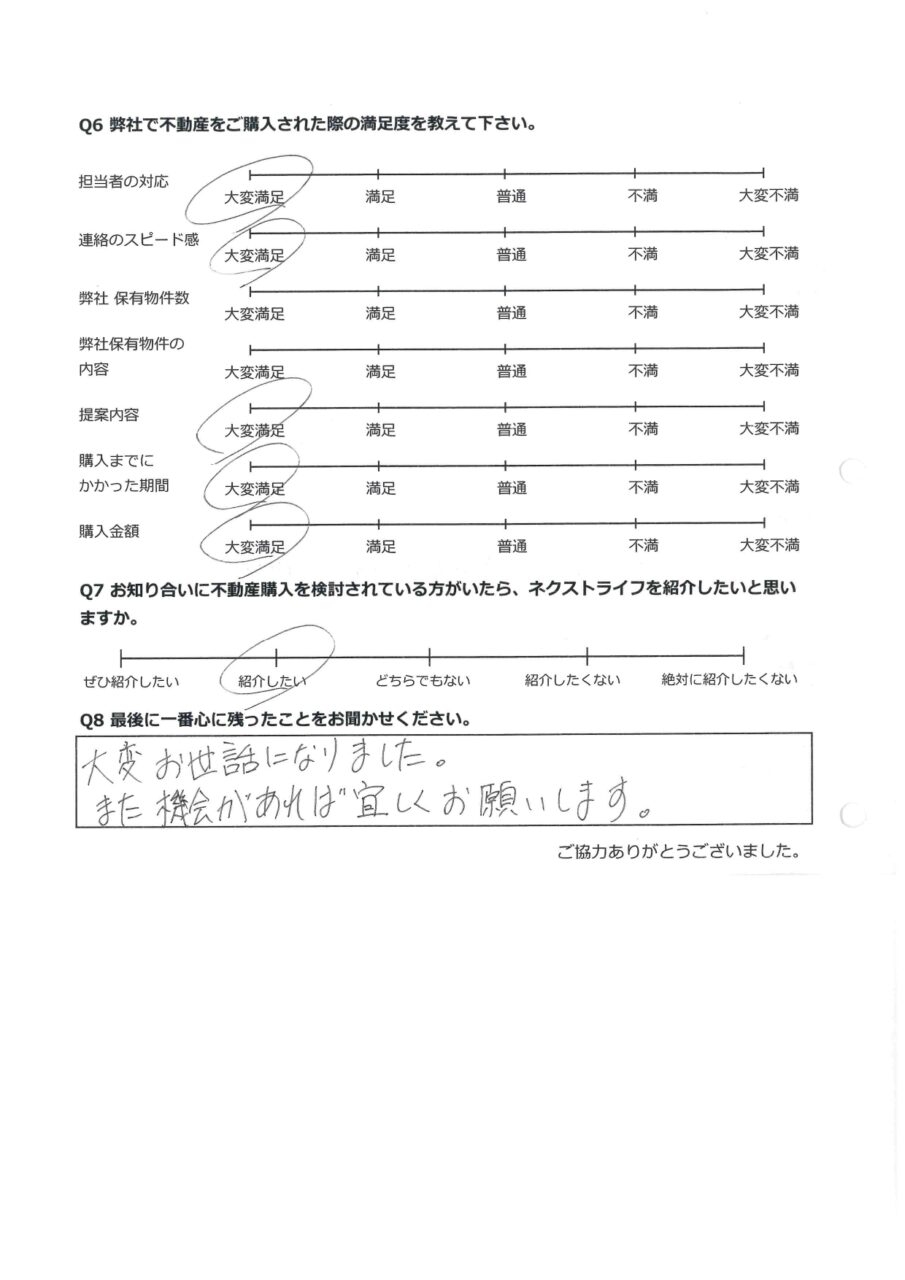 Q6 弊社で不動産をご購入された際の満足度を教えて下さい。
担当者の対応
大変満足 満足 普通 不満 大変不満
連絡のスピード感
大変満足 満足 普通 不満 大変不満
弊社 保有物件数
大変満足 満足 普通 不満 大変不満
弊社保有物件の
内容
大変満足 満足 普通 不満 大変不満
提案内容
大変満足 満足 普通 不満 大変不満
購入までに
かかった期間
大変満足 満足 普通 不満 大変不満
購入金額
大変満足 満足 普通 不満 大変不満
Q7 お知り合いに不動産購入を検討されている方がいたら、ネクストライフを紹介したいと思い
ますか。
ぜひ紹介したい 紹介したい どちらでもない 紹介したくない 絶対に紹介したくない
Q8 最後に一番心に残ったことをお聞かせください。
大変お世話になりました。
また機会があれば宜しくお願いします。
ご協力ありがとうございました。